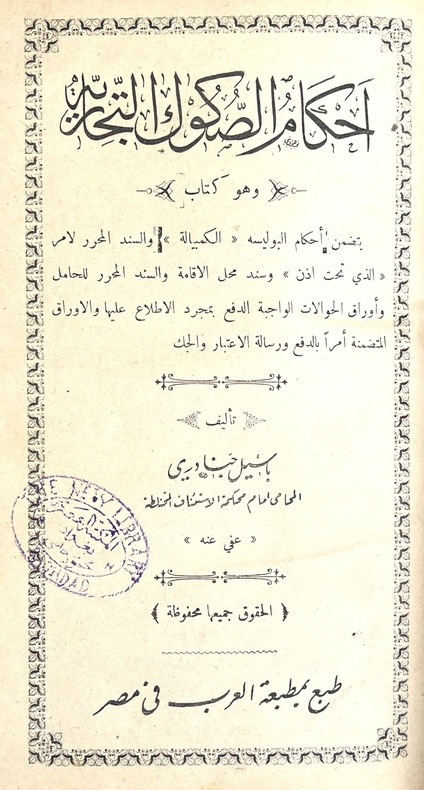 أحكام الصكوك التجارية
وهو كتاب
يتضمن أحكام البوليسه « الكمبيالة » والسند المحرر لامر
« الذي تحت اذن » وسند محل الاقامة والسند المحرر للحامل
وأوراق الحوالات الواجبة الدفع بمجرد الاطلاع عليها والاوراق
المتضمنة أمراً بالدفع ورسالة الاعتبار والجك
تأليف
باسيل جنادري
المحامي امام محكمة الاستئناف المختلطة
« عفي عنه »
﴿ الحقوق جميعها محفوظة ﴾
طبع بمطبعة العرب في مصر
NEW LIBRARY